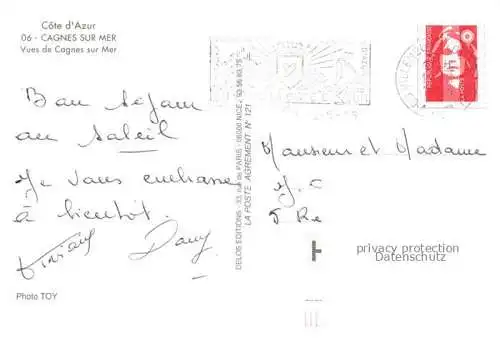 Côte d'Azur
06 - CAGNES SUR MER
Vues de Cagnes sur Mer
Bon séjour
au soleil
Je vous embrasse
à bientôt.
Dany
Photo TOY
DELOS EDITIONS - 33, rue de PARIS - 06000 NICE - 93 56 83 75
LA POSTE AGREMENT N° 121
REPUBLIQUE FRANÇAISE
LA POSTE
Monsieur et Madame
J. C
5 Re
privacy protection
Datenschutz